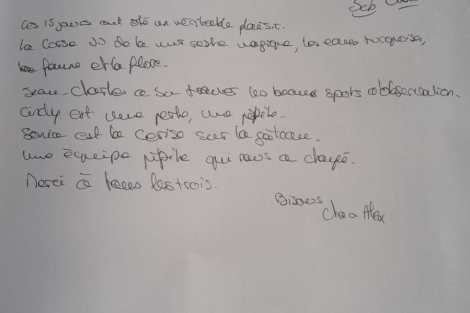 Seb
Ces 15 jours ont été un véritable plaisir.
La Corse vu de la mer reste magique, les eaux turquoises,
la faune et la flore.
Jean-Charles a su trouver les beaux spots d'observation.
Cindy est une perle, une pépite.
est la cerise sur le gâteau.
Une équipe pépite qui nous a choyé.
Merci à tous les trois.
Bisous
Alex